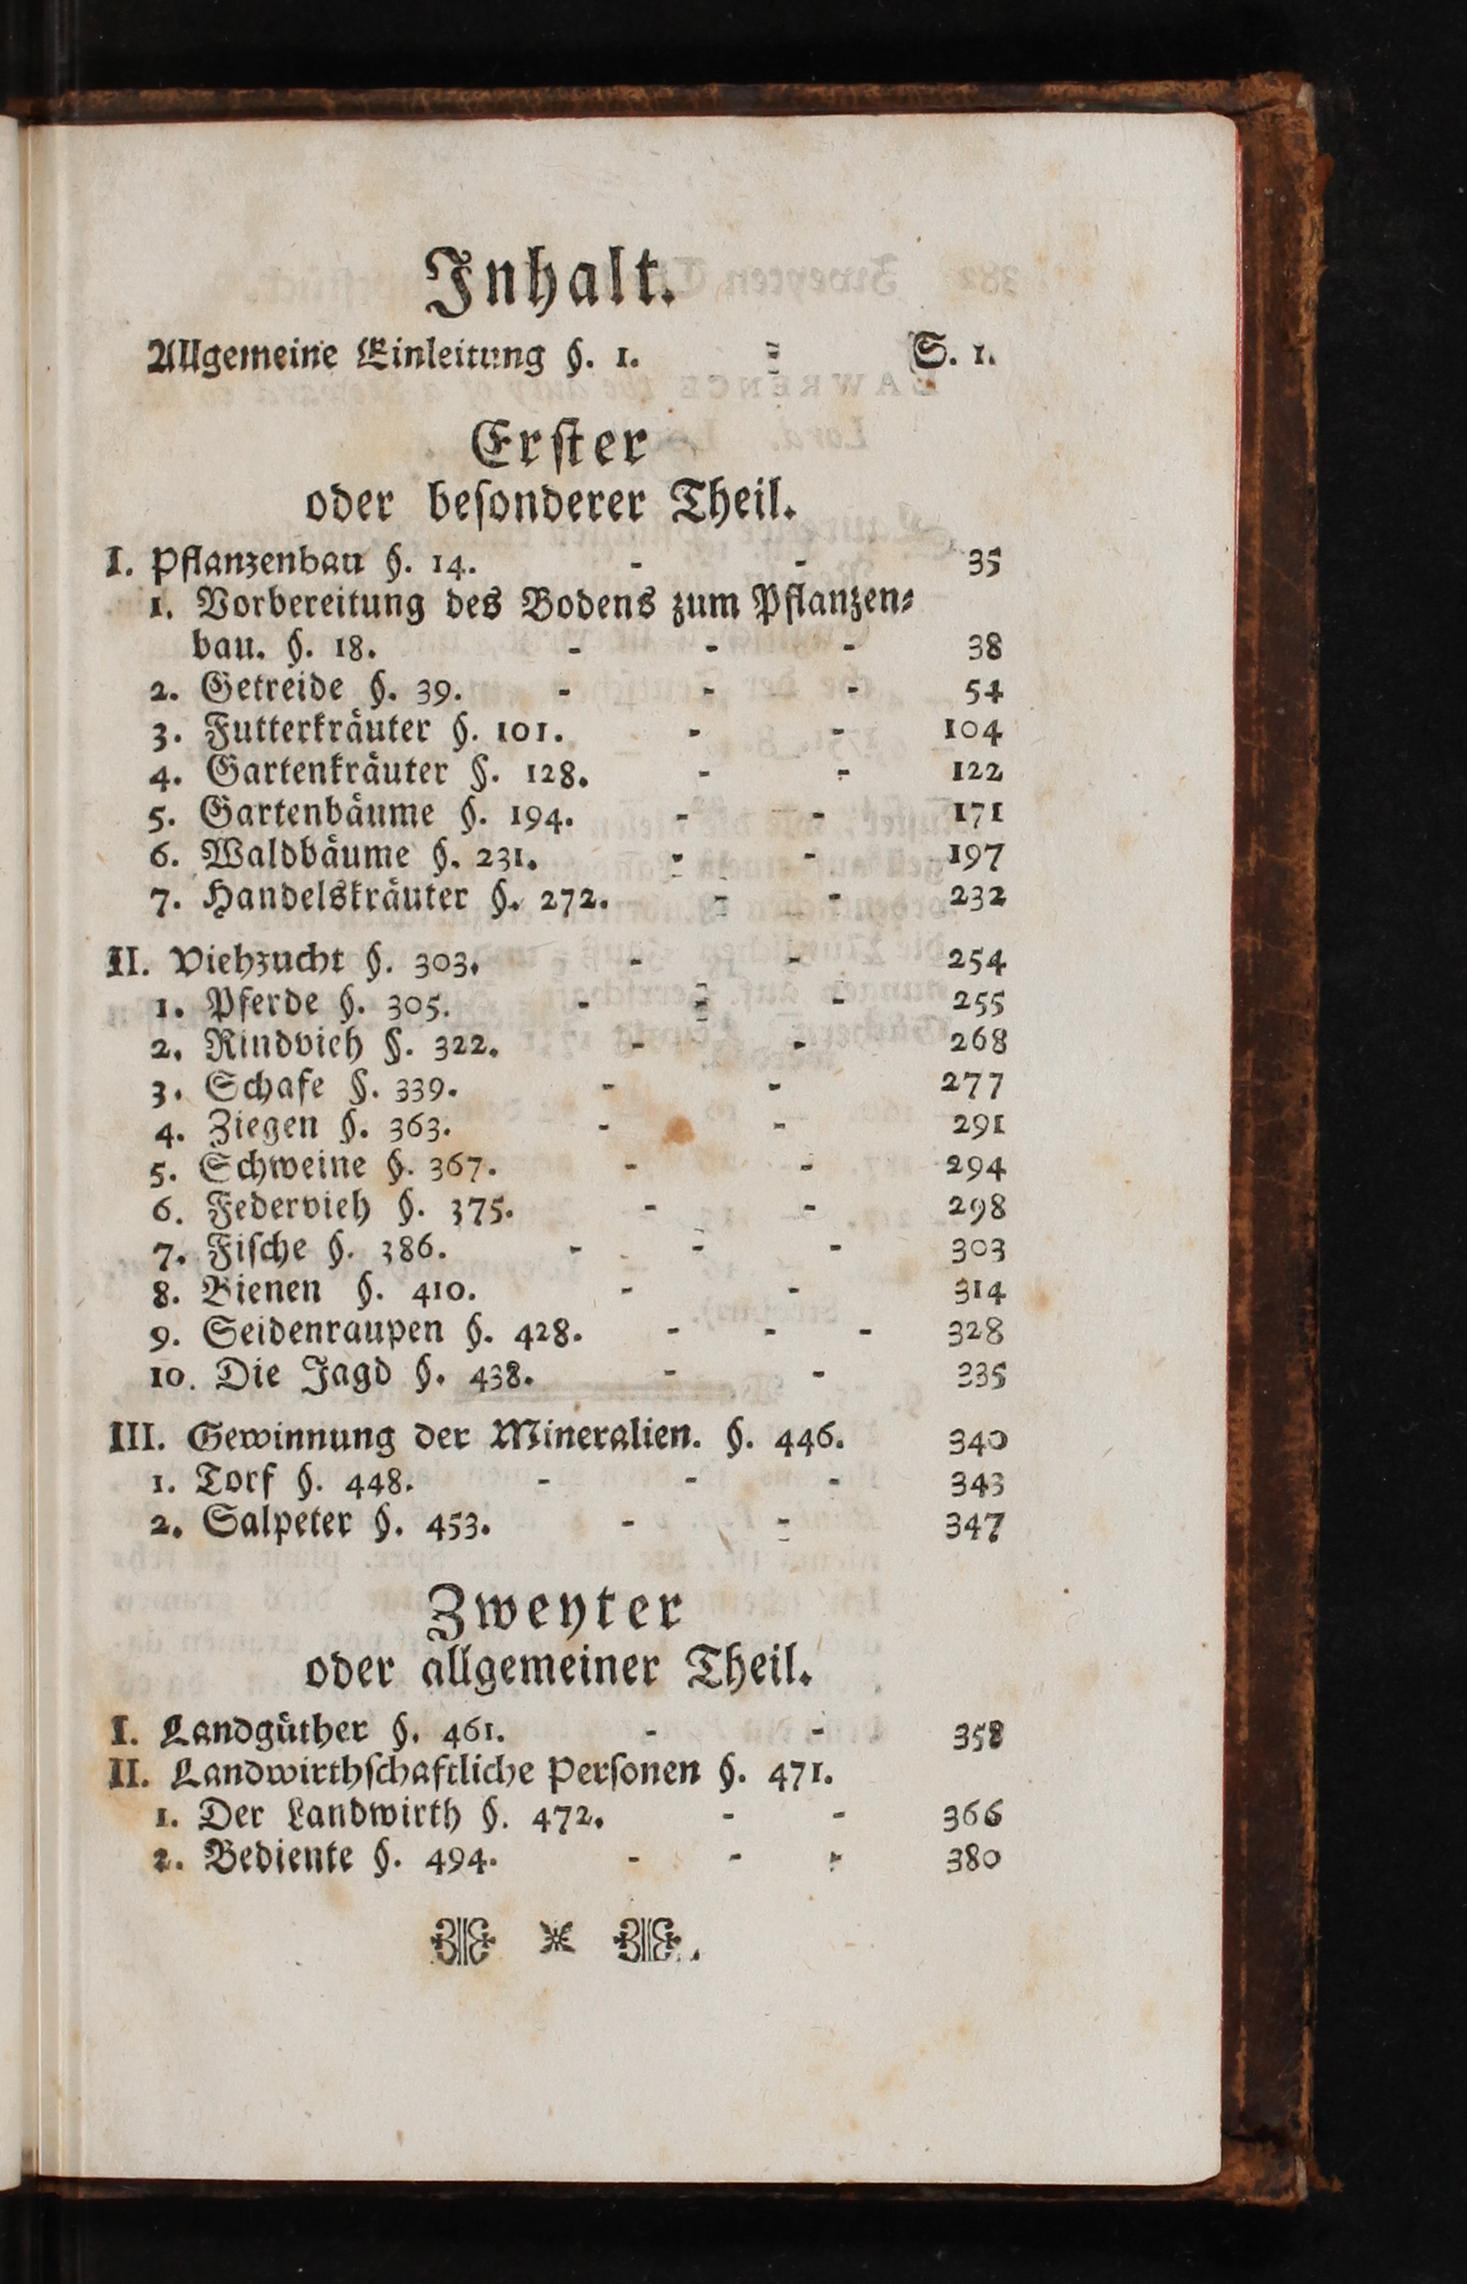 Inhalt.
Allgemeine Einleitung §. 1. - S. 1.
Erſter
oder beſonderer Theil.
I. Pflanzenbau §. 14. - - 35
1. Vorbereitung des Bodens zum Pflanzen⸗
bau. §. 18. - - - 38
2. Getreide §. 39. - - - 54
3. Futterkraͤuter §. 101. - - 104
4. Gartenkraͤuter §. 128. - - 122
5. Gartenbaͤume §. 194. - - 171
6. Waldbaͤume §. 231. - - 197
7. Handelskraͤuter §. 272. - - 232
II. Viehzucht §. 303. - - 254
1. Pferde §. 305. - - - 255
2. Rindvieh §. 322. - - 268
3. Schafe §. 339. - - 277
4. Ziegen §. 363. - - 291
5. Schweine §. 367. - - 294
6. Federvieh §. 375. - - 298
7. Fiſche §. 386. - - - 303
8. Bienen §. 410. - - 314
9. Seidenraupen §. 428. - - - 328
10. Die Jagd §. 438. - - 335
III. Gewinnung der Mineralien. §. 446. 340
1. Torf §. 448. - - - 343
2. Salpeter §. 453. - - 347
Zweyter
oder allgemeiner Theil.
I. Landguͤther §. 461. - - 358
II. Landwirthſchaftliche Perſonen §. 471.
1. Der Landwirth §. 472. - - 366
2. Bediente §. 494. - - - 380